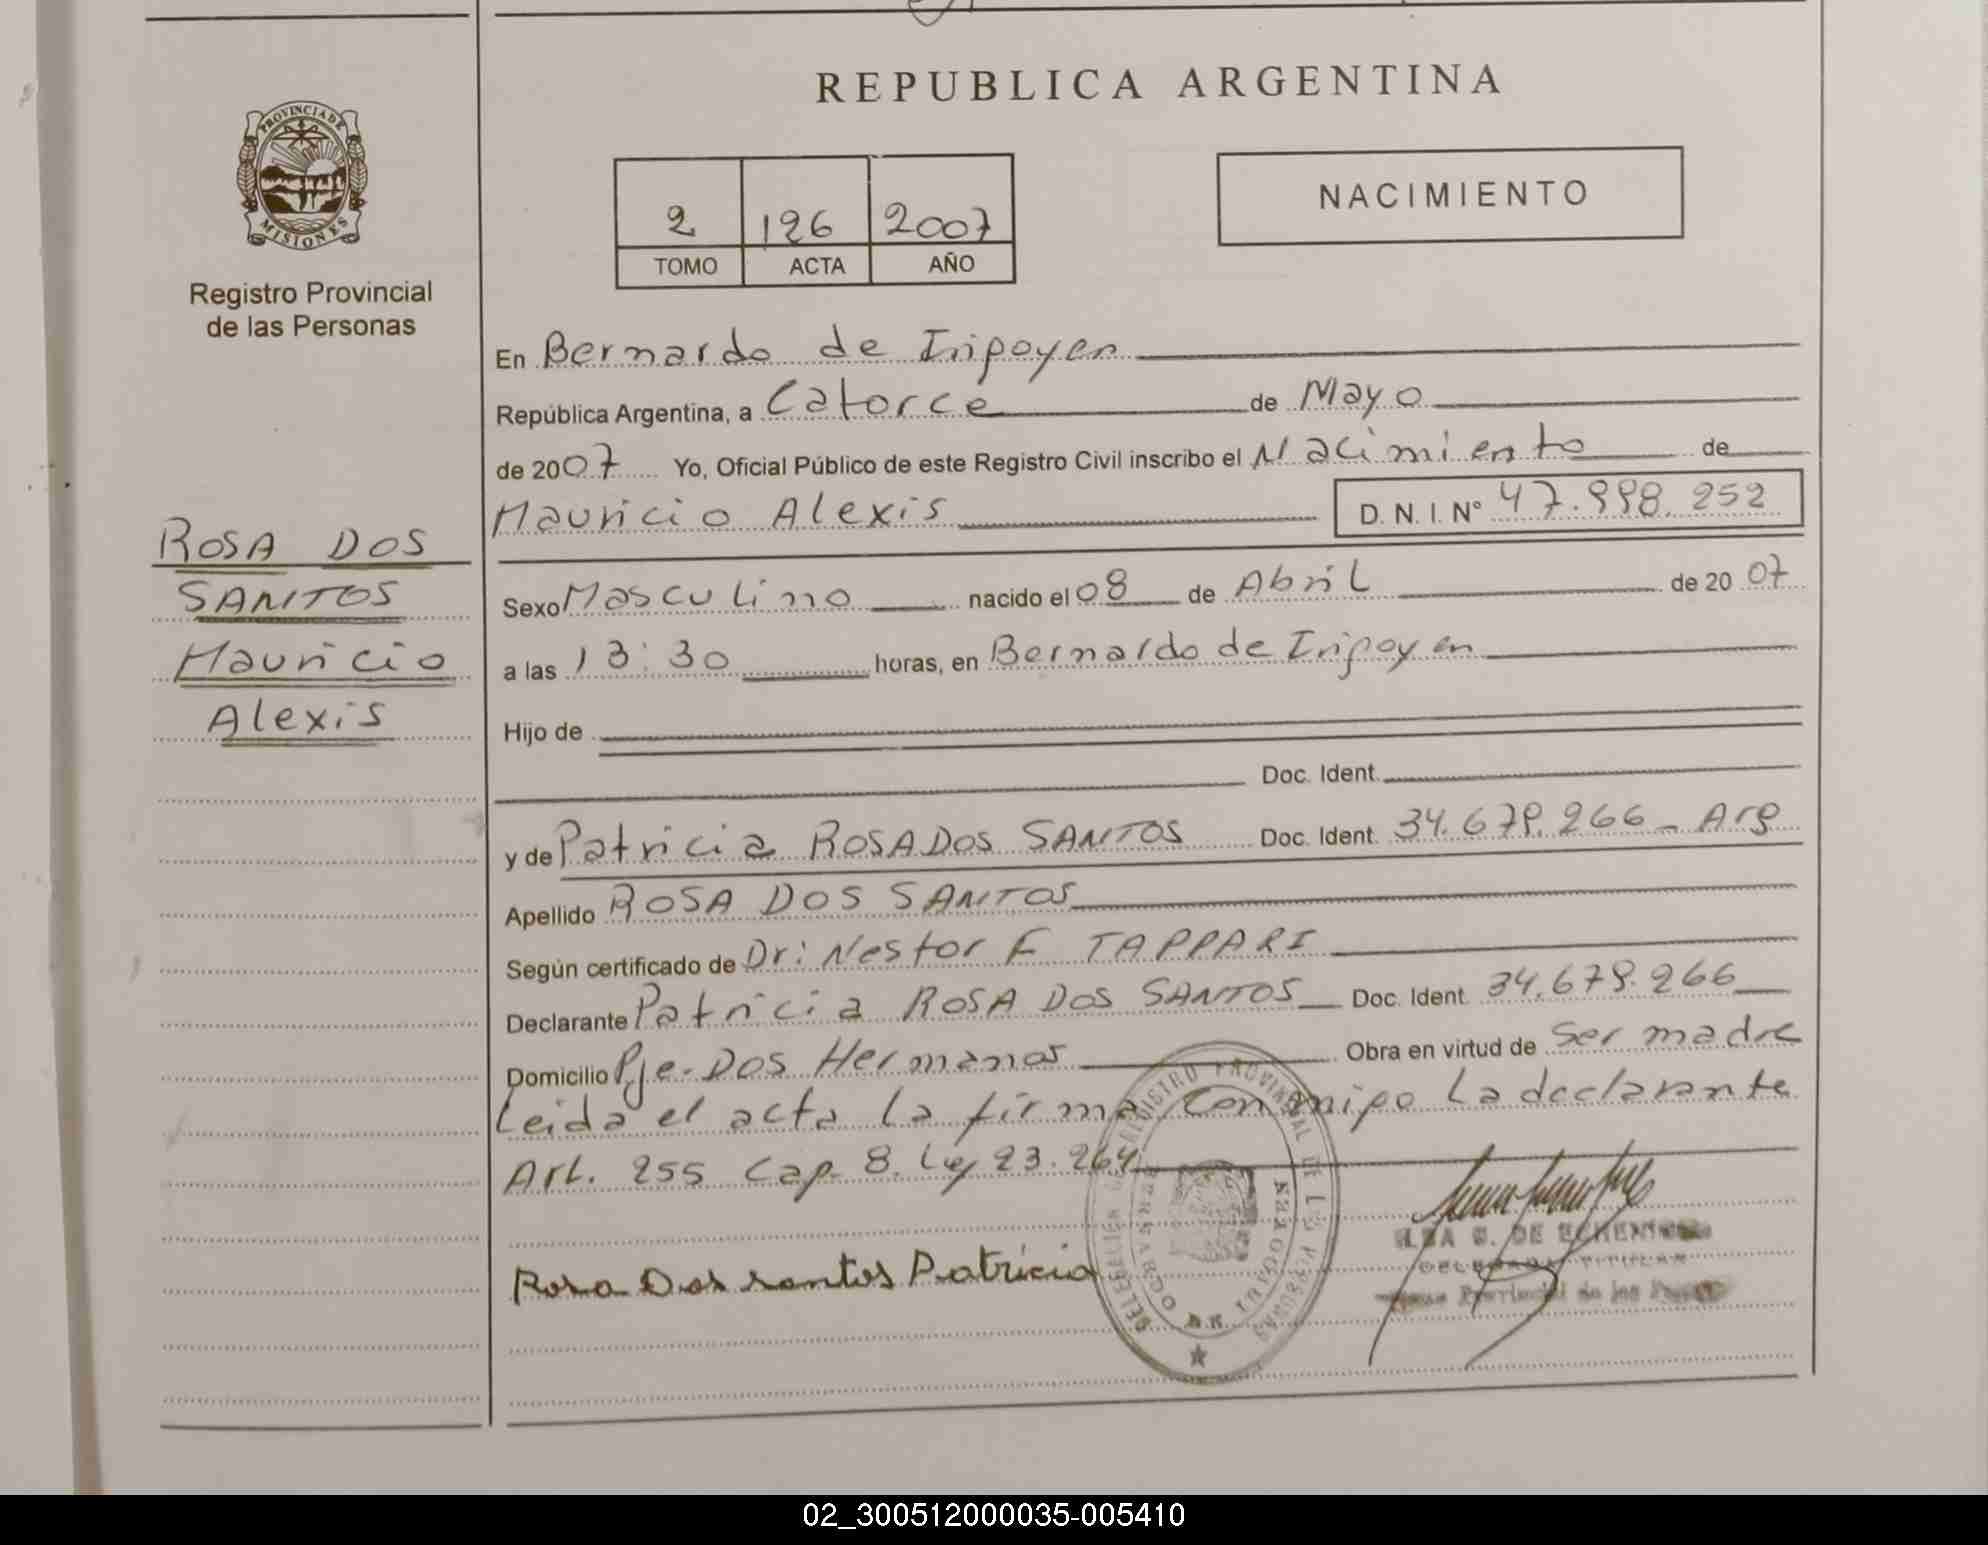 REPUBLICA ARGENTINA
PROVINCIA DE
MISIONES
Registro Provincial
de las Personas
NACIMIENTO
2 126 2007
TOMO ACTA AÑO
En Bernardo de Irigoyen
República Argentina, a Catorce de Mayo
de 2007 Yo, Oficial Público de este Registro Civil inscribo el Nacimiento de
Mauricio Alexis D. N. I. Nº 47.998.252
ROSA DOS
SANTOS
Mauricio
Alexis
Sexo Masculino nacido el 08 de Abril de 20 07
a las 13:30 horas, en Bernardo de Irigoyen
Hijo de
Doc. Ident.
y de Patricia ROSA DOS SANTOS Doc. Ident. 34.679.266 - Arg
Apellido ROSA DOS SANTOS
Según certificado de Dr: Nestor F TAPPARI
Declarante Patricia ROSA DOS SANTOS Doc. Ident. 34.679.266
Domicilio Pje. DOS Hermanas Obra en virtud de Ser madre
Leida el acta la firma conmigo La declarante
Art. 255 Cap. 8. Ley 23.264
Rosa Dos santos Patricia
DE
REGISTRO PROVINCIAL DE LAS PERSONAS
02_300512000035-005410